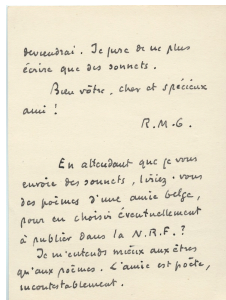 deviendrai. Je jure de ne plus
écrire que des sonnets.
Bien vôtre, cher et spécieux
ami !
R.M.G.
En attendant que je vous
envoie des sonnets, liriez-vous
des poèmes d'une amie belge,
pour en choisir éventuellement
à publier dans la N.R.F. ?
Je m'entends mieux aux êtres
qu'aux poèmes. L'amie est poète,
incontestablement.